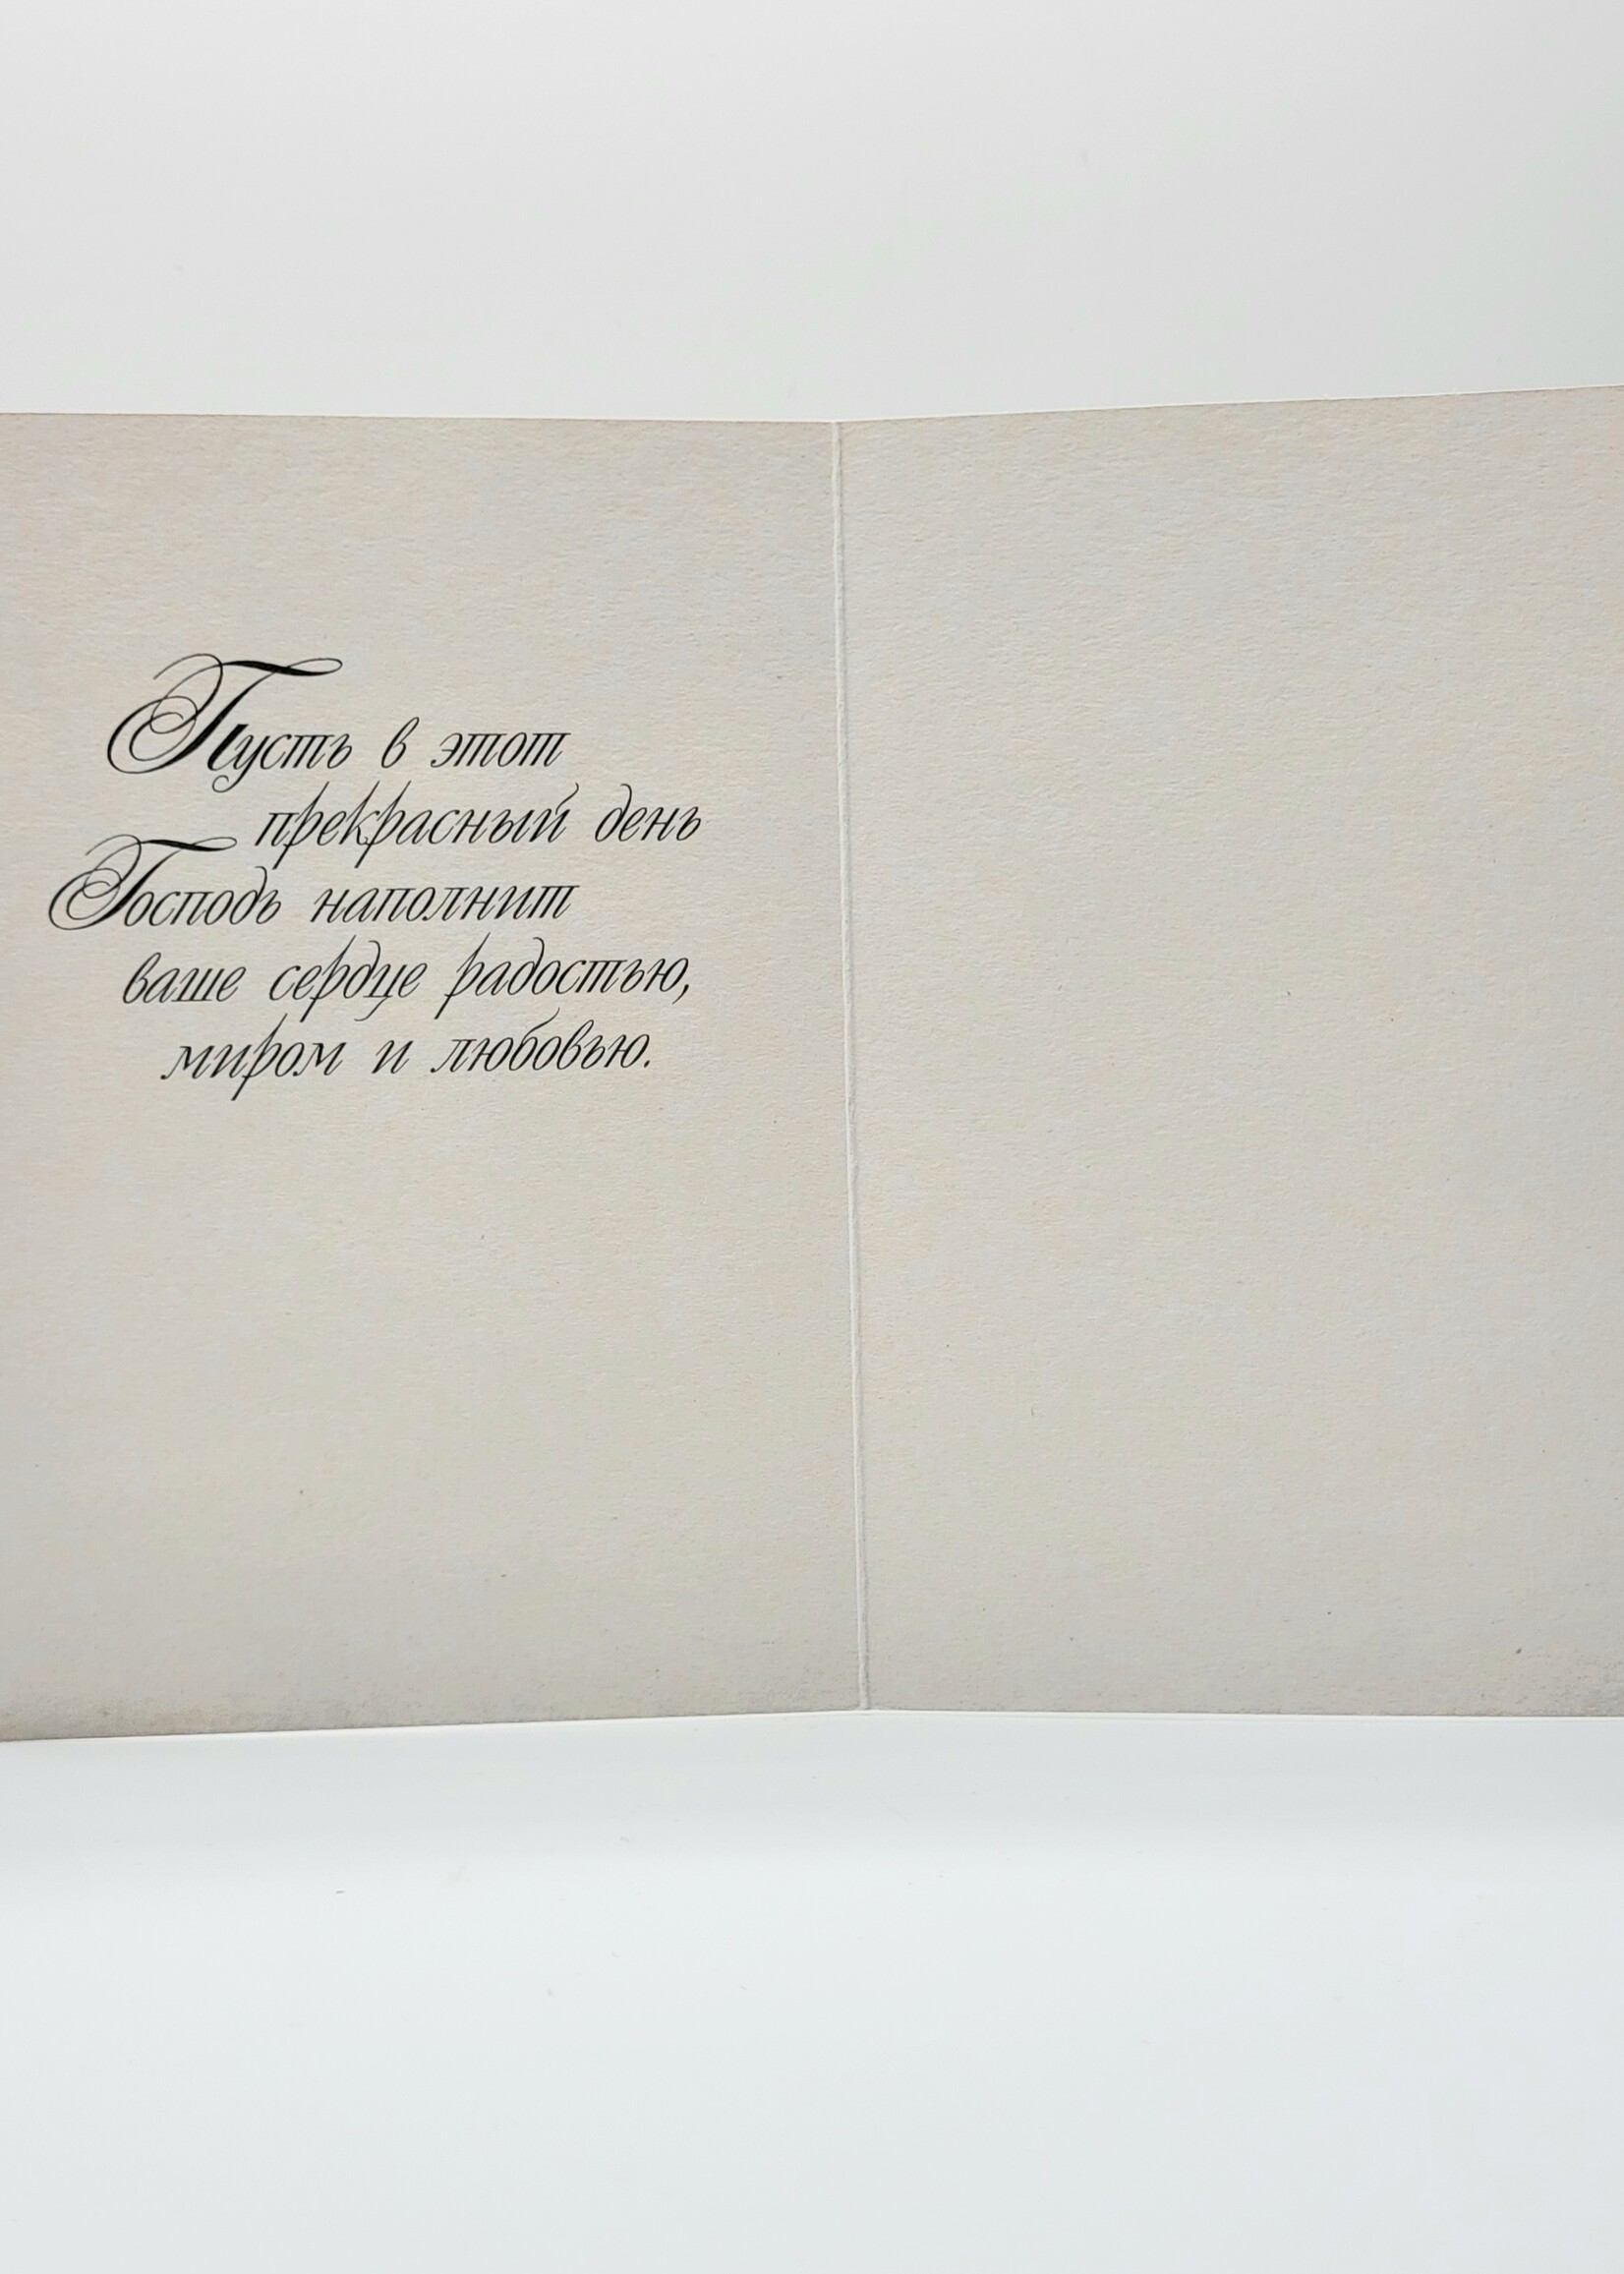 Пусть в этот
прекрасный день
Господь наполнит
ваше сердце радостью,
миром и любовью.